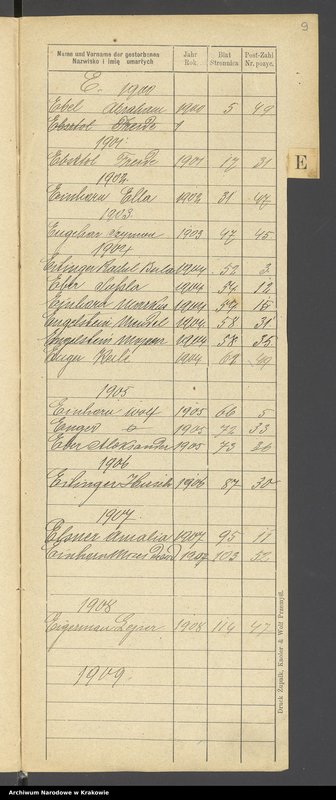 9
Name und Vorname der gestorbenen
Nazwisko i imię umarłych
Jahr
Rok.
Blatt
Stronnica
Post-Zahl
Nr. pozyc.
E
E. 1900
Ebel Abraham 1900 5 49
Ebstol
1901
1901 17 31
1902
Einhorn Ella 1902 31 47
1903
1903 47 45
1904
Ettinger Rachel 1904 52 3
Eber 1904 54 12
Einhorn Markus 1904 54 15
Engelstein Mendel 1904 58 31
Engelstein 1904 58 35
Enger 1904 62 49
1905
Einhorn Wolf 1905 66 5
Enger 1905 72 33
Eber Aleksander 1905 73 36
1906
Ettinger Hirsch 1906 87 30
1907
Elsner Amalia 1907 95 11
Einhorn Moses Dawid 1907 103 52
1908
Eigerman Lejser 1908 114 47
1909.
Druck Żupnik, Knoller & Wolf Przemyśl.
Archiwum Narodowe w Krakowie